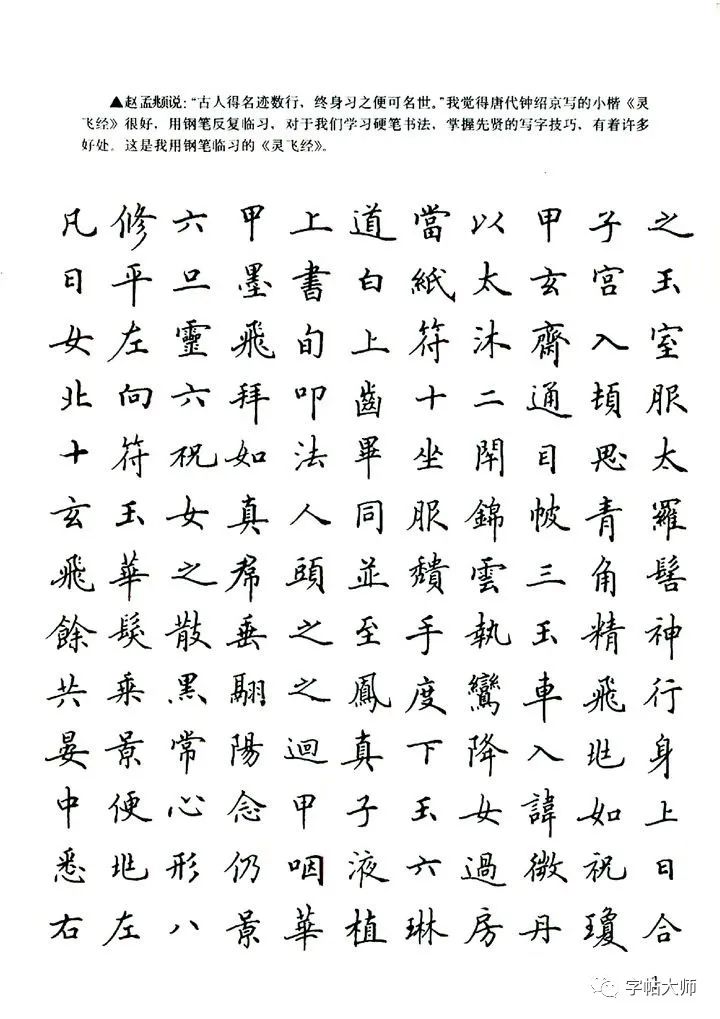 ▲赵孟頫说：“古人得名迹数行，终身习之便可名世。”我觉得唐代钟绍京写的小楷《灵
飞经》很好，用钢笔反复临习，对于我们学习硬笔书法，掌握先贤的写字技巧，有着许多
好处。这是我用钢笔临习的《灵飞经》。
凡修六甲上道當以甲子之
日平旦墨書白紙太玄宮玉
女左靈飛旬上符沐齋入室
北向六拜叩齒十二通頓服
十符祝如法畢坐閉目思太
玄玉女真人同服錦帔青羅
飛華之帬頭並頹雲三角髻
餘髮散垂之至手執玉精神
共乘黑翮之鳳度鸞車飛行
晏景常陽迴真下降入兆身
中便心念甲子玉女諱如上
悉兆形仍咽液六過微祝曰
右左八景華植琳房丹瓊合
1
字帖大师